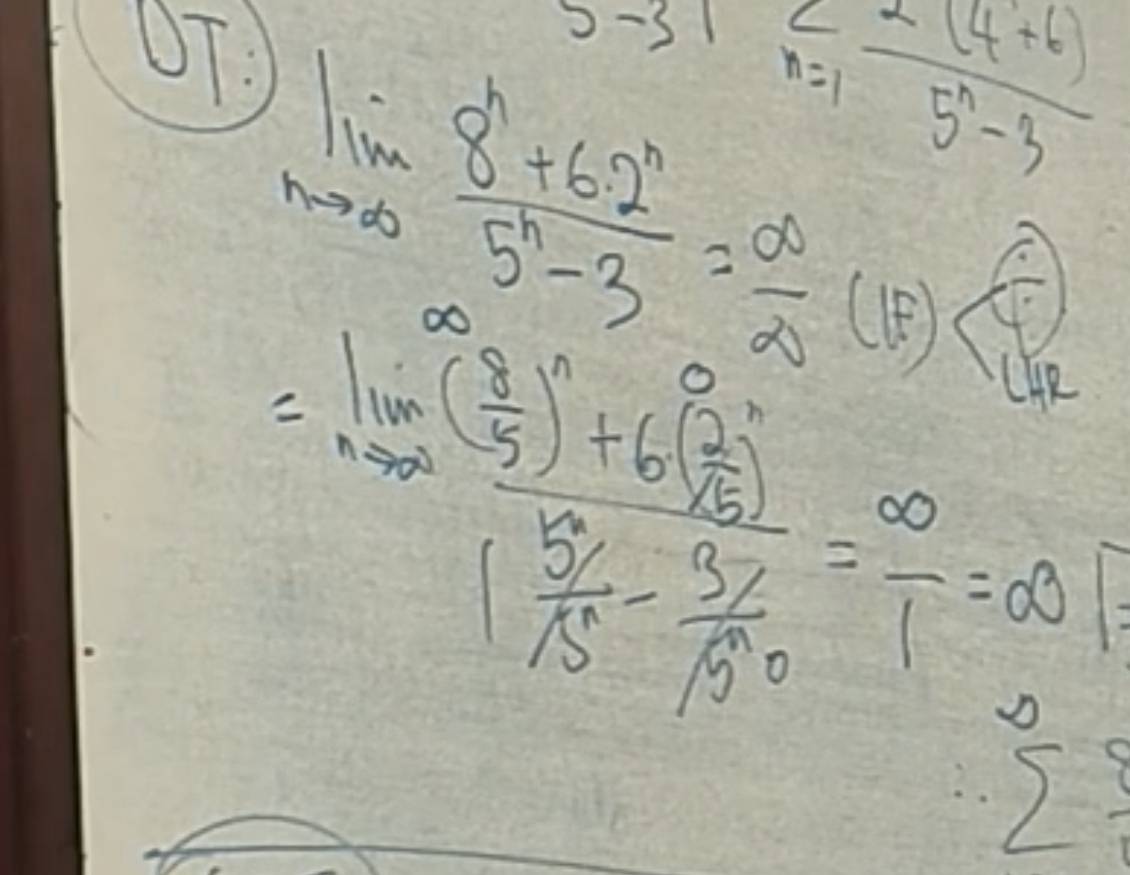 DT:
5 - 3
∑ n=1 2 (4 + 6) / 5ⁿ - 3
lim n→∞ 8ⁿ + 6·2ⁿ / 5ⁿ - 3 = ∞ / ∞ (IF) < ÷ LHR
= lim n→∞ ∞ (8/5)ⁿ + 6·(2/5)ⁿ 0 / 1 5ⁿ/5ⁿ - 3/5ⁿ 0 = ∞ / 1 = ∞
∴ ∞ ∑ 8